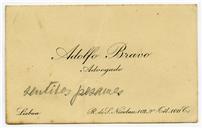 Adolfo Bravo
Advogado
sentidos pesames
Lisboa
R. de S. Nicolau, 102, 2º Tel. 1081 C.